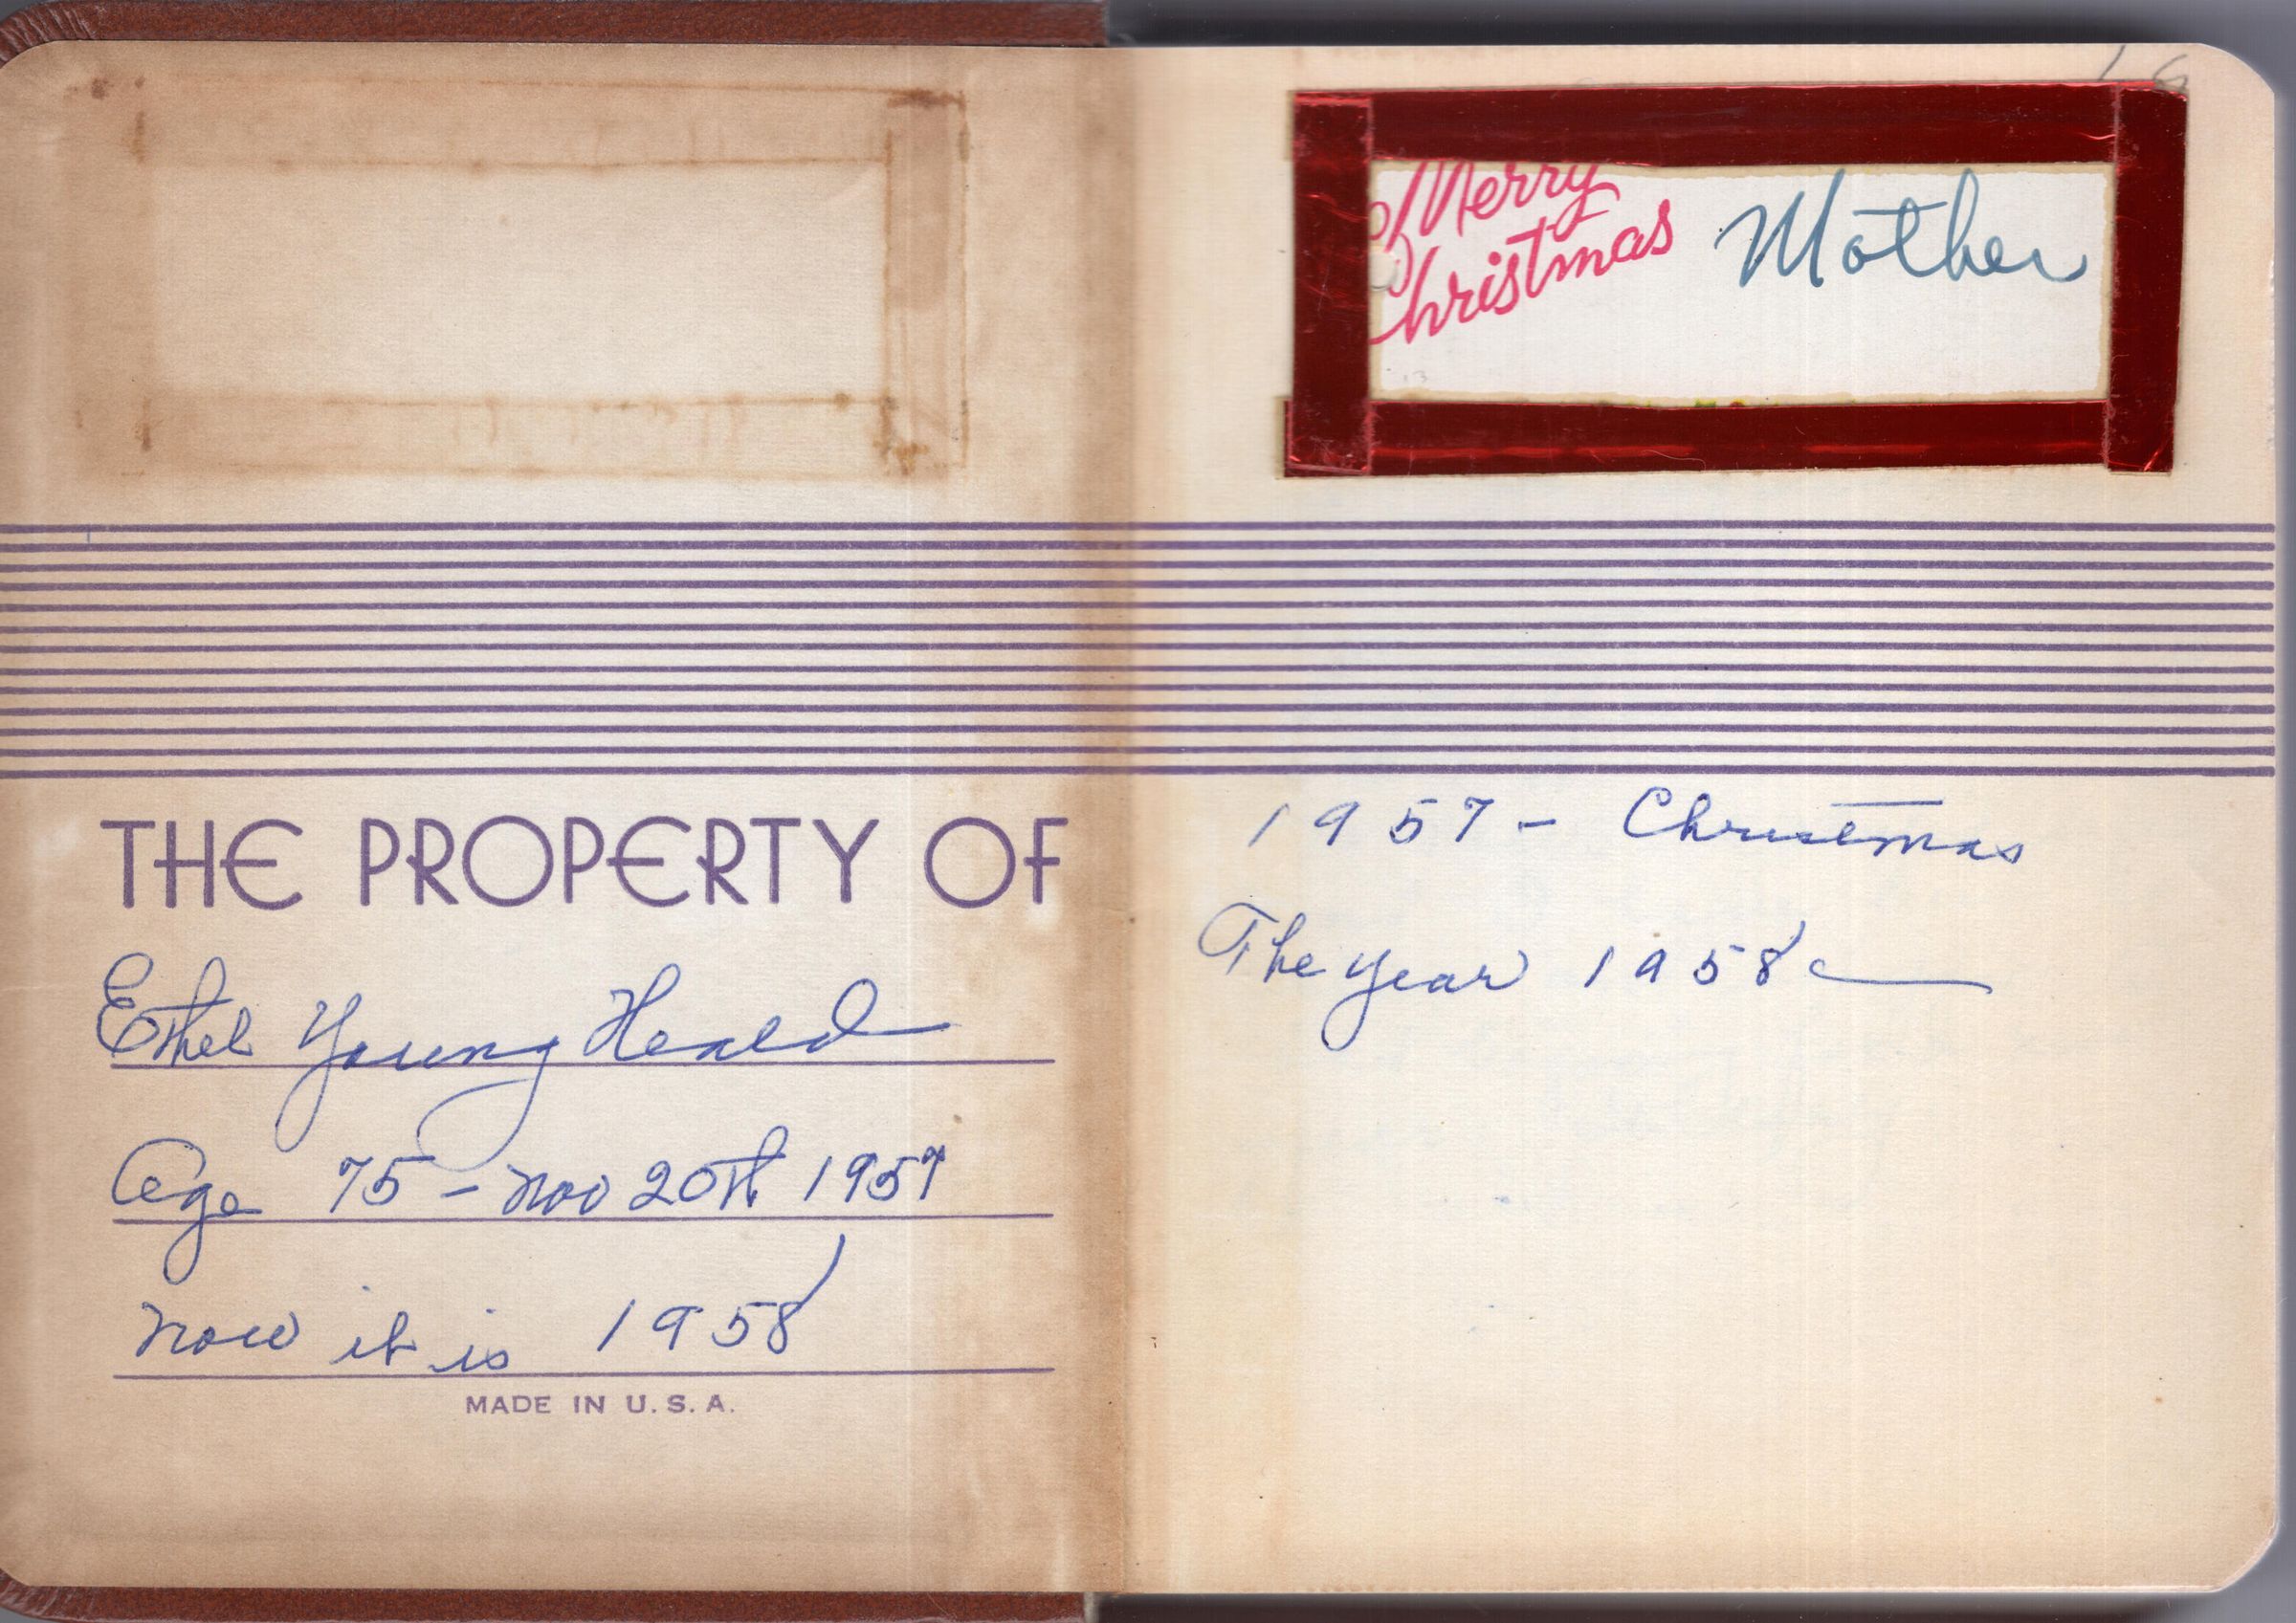 THE PROPERTY OF
Ethel Young Heald
Age 75 - Nov 20th 1957
now it is 1958
MADE IN U.S.A.
16
Merry
Christmas
Mother
1957 - Christmas
The year 1958